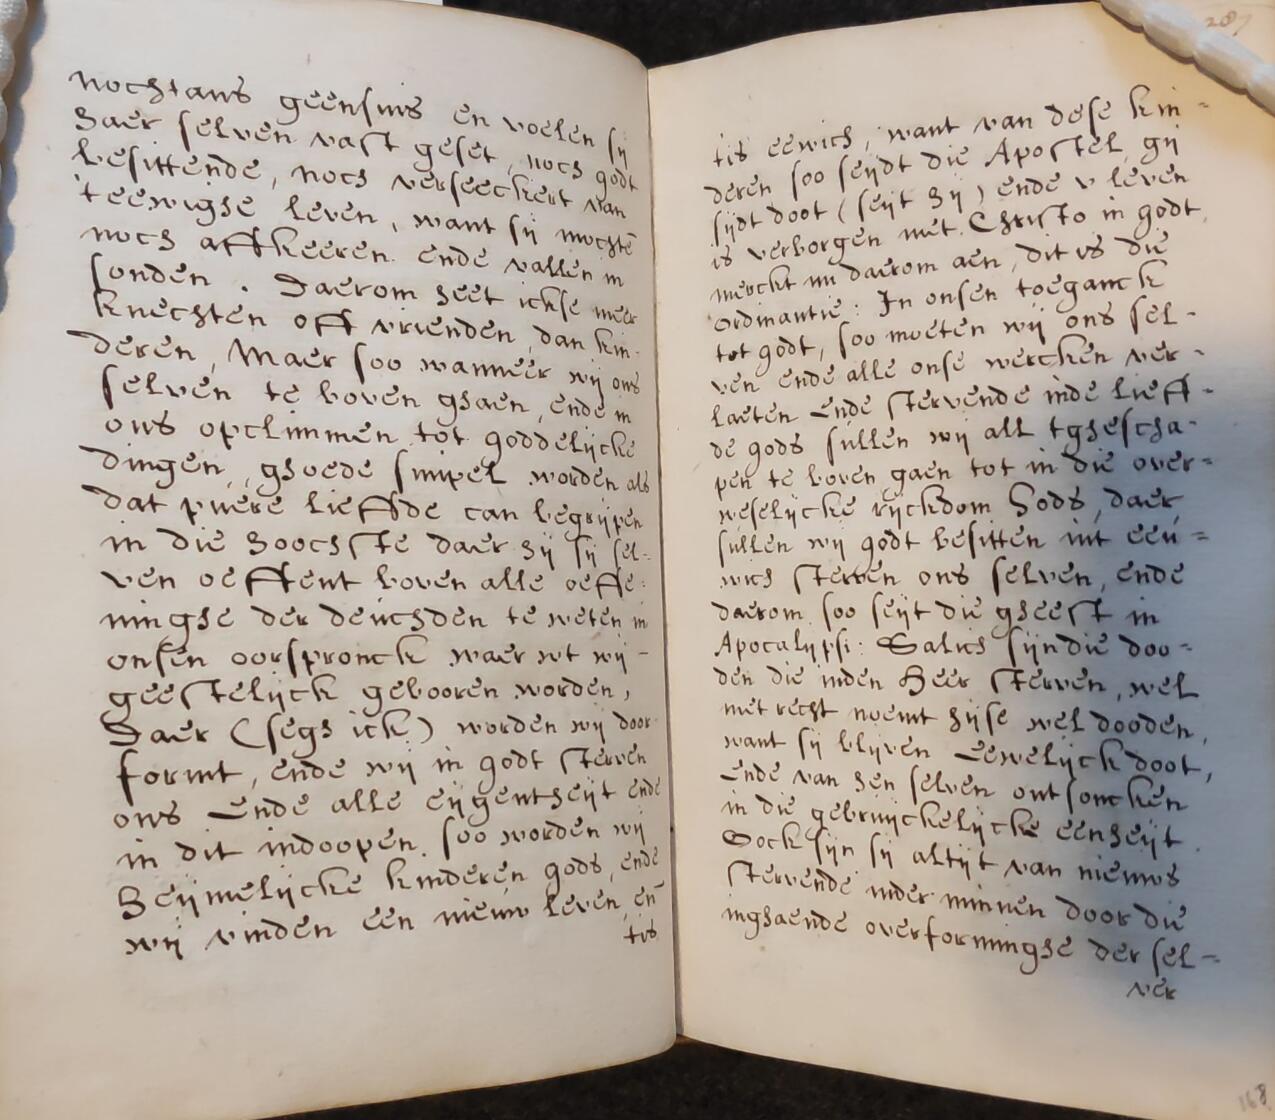 nochtans geensins en voelen sij
haer selven vast geset, noch godt
besittende, noch verseeckert van
teewighe leven, want sij mochtē
noch affkeeren ende vallen in
sonden. Daerom heet ickse meer
knechten off vrienden, dan kin-
deren, Maer soo wanneer wij ons
selven te boven ghaen, ende in
ons opclimmen tot goddelijcke
dingen, ghoede simpel worden als
dat puere lieffde can begrijpen
in die hoochste daer hij sij sel-
ven oeffent boven alle oeffe-
ninghe der deuchden te weten in
onsen oorspronck waer wt wij -
geestelijck gebooren worden,
Daer (segh ick) worden wij door
formt, ende wij in godt sterven
ons ende alle eijgentheijt ende
in dit indoopen. soo worden wij
heijmelijcke kinderen gods, ende
wij vinden een nieuw leven, eñ
tis
287
tis eewich, want van dese kin-
deren soo seijdt die Apostel gij
sijdt doot (seijt hij) ende v leven
is verborgen met Christo in godt,
merckt nu daerom aen, dit is die
ordinantie: In onsen toeganck
tot godt, soo moeten wij ons sel-
ven ende alle onse wercken ver-
laeten ende stervende inde lieff-
de gods sullen wij all tghescha-
pen te boven gaen tot in die over-
weselijcke rijckdom Gods, daer
sullen wij godt besitten int eeu-
wich sterven ons selven, ende
daerom soo seijt die gheest in
Apocalypsi: Salich sijn die doo-
den die inden Heer sterven, wel
met recht noemt hijse wel dooden,
want sij blijven Eewelijck doot,
ende van hen selven ontsoncken
in die gebruijckelijcke eenheijt.
Oock sijn sij altijt van nieuws
stervende inder minnen door die
inghaende overforminghe der sel-
ver
168